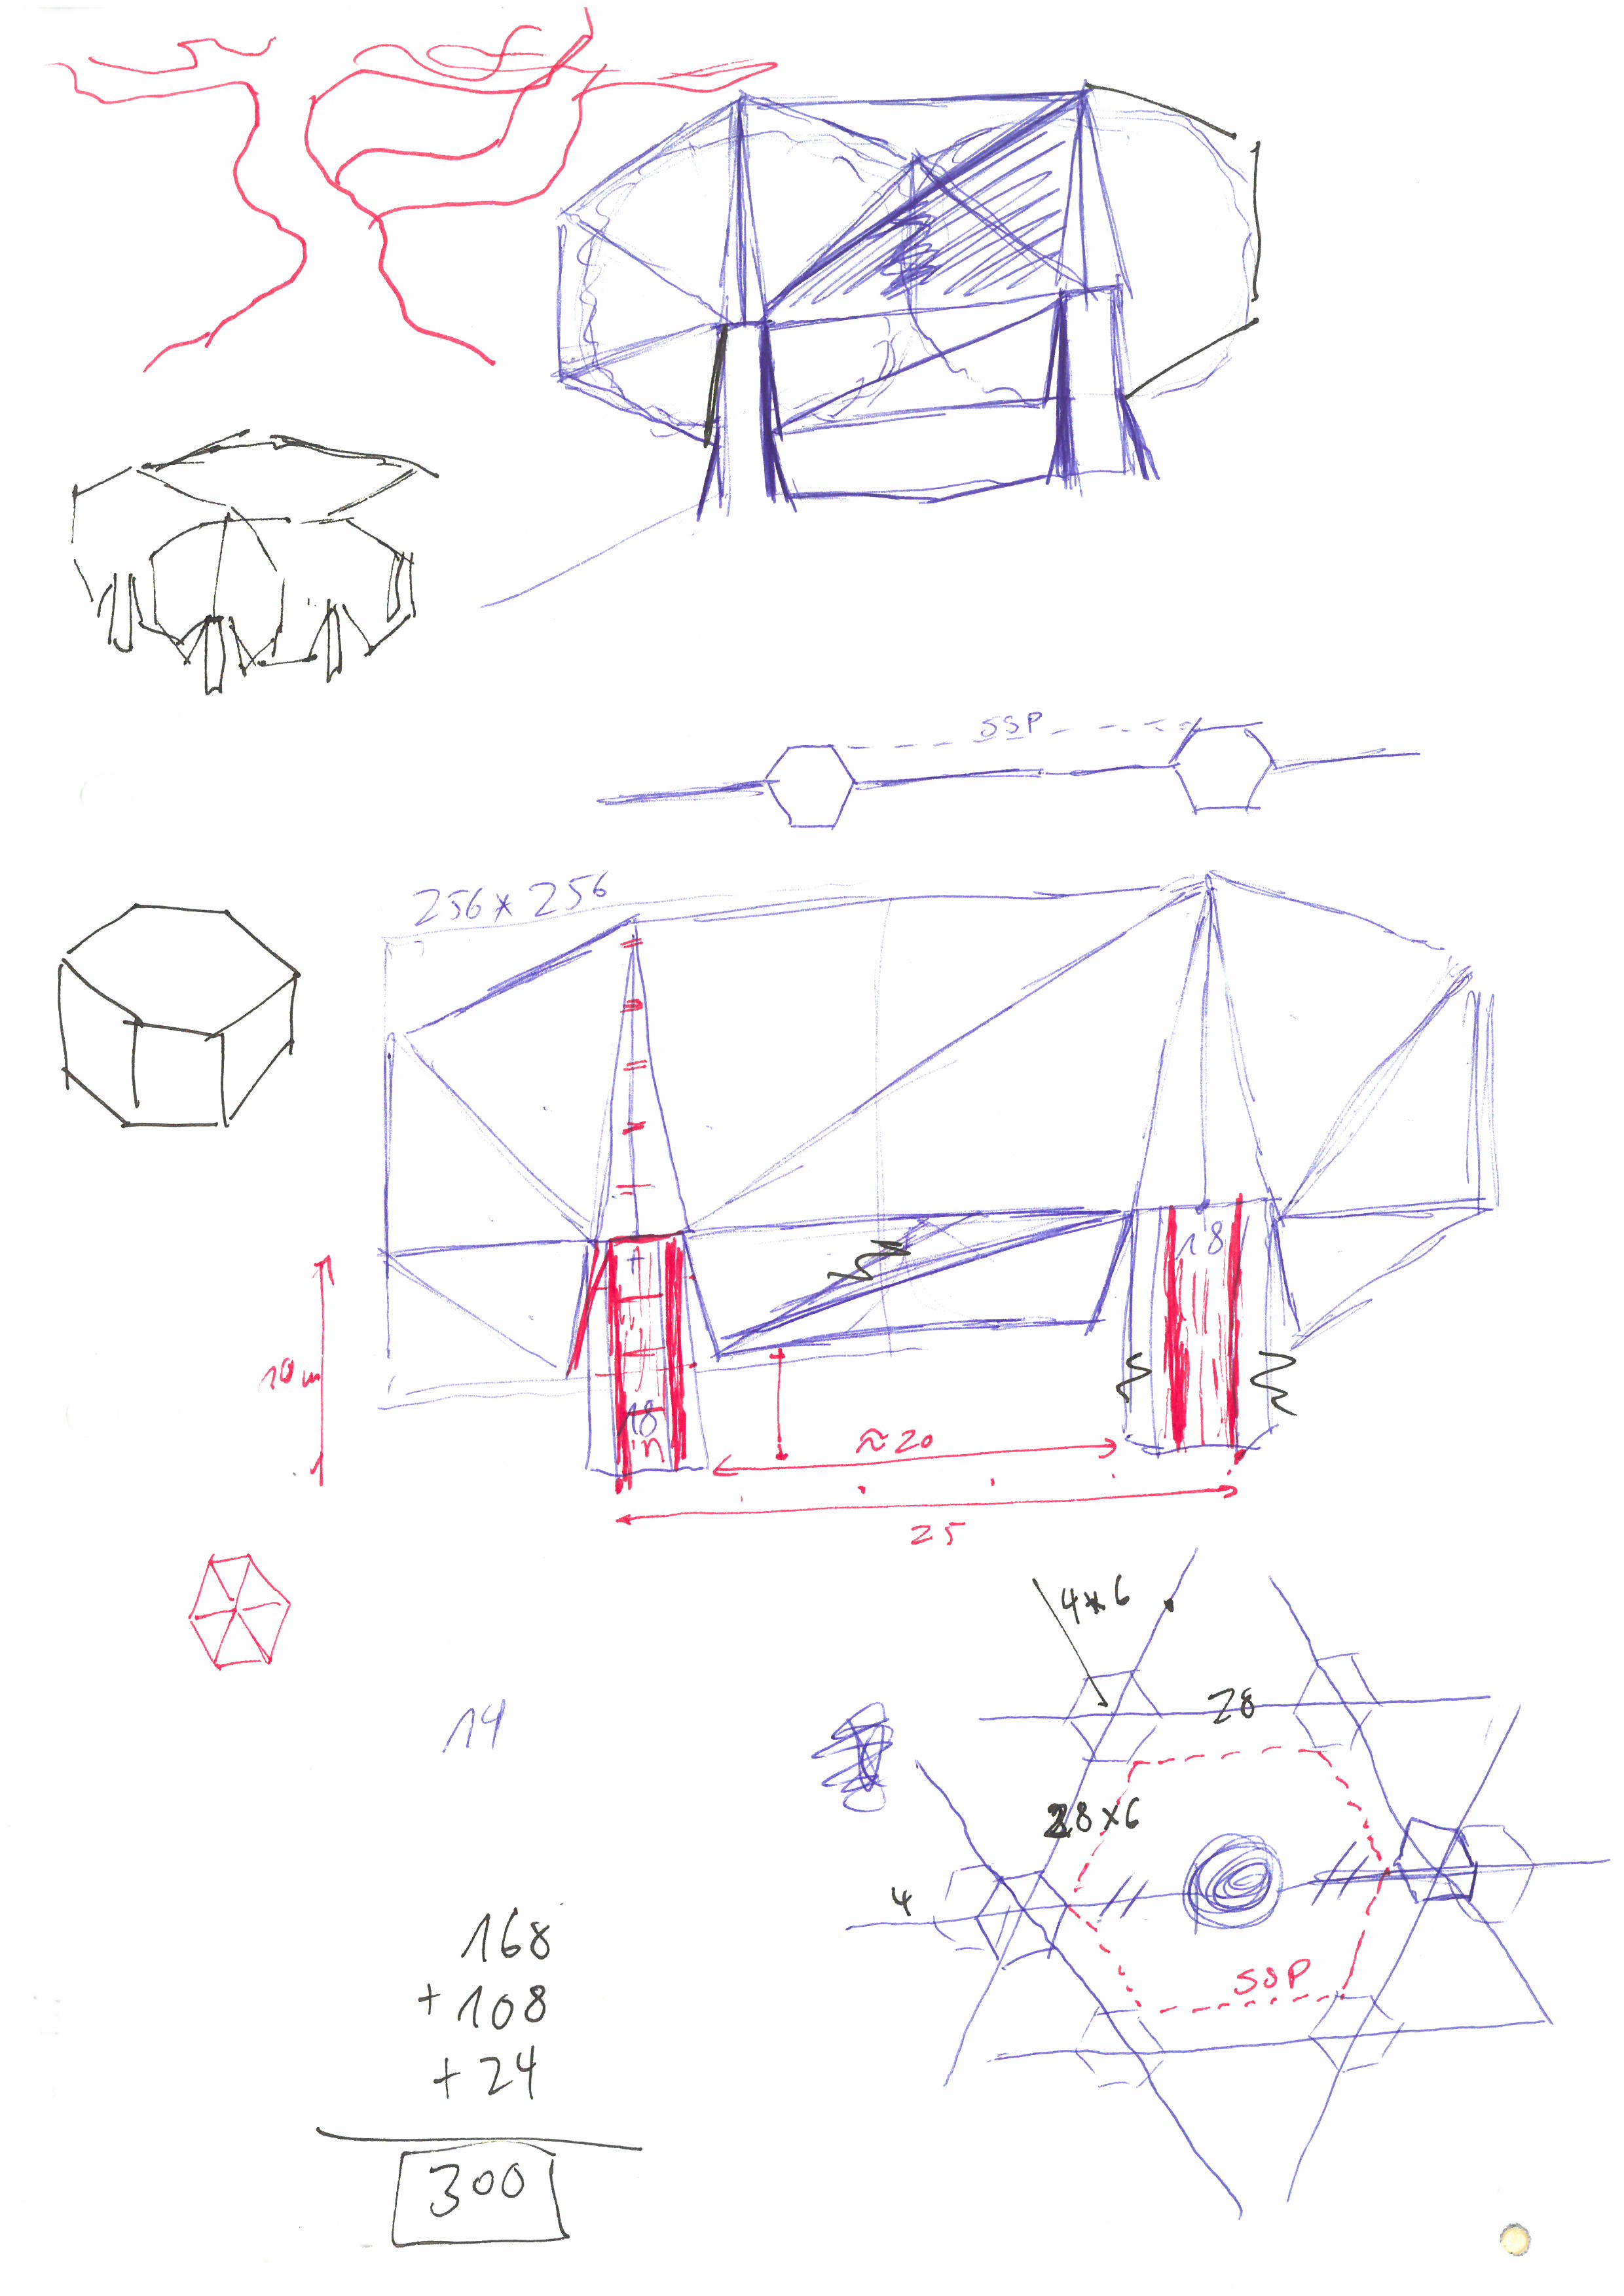 SSP
256*256
18
10m
18
≈20
25
4*6
28
14
28×6
4
168
+108
SSP
+24
300